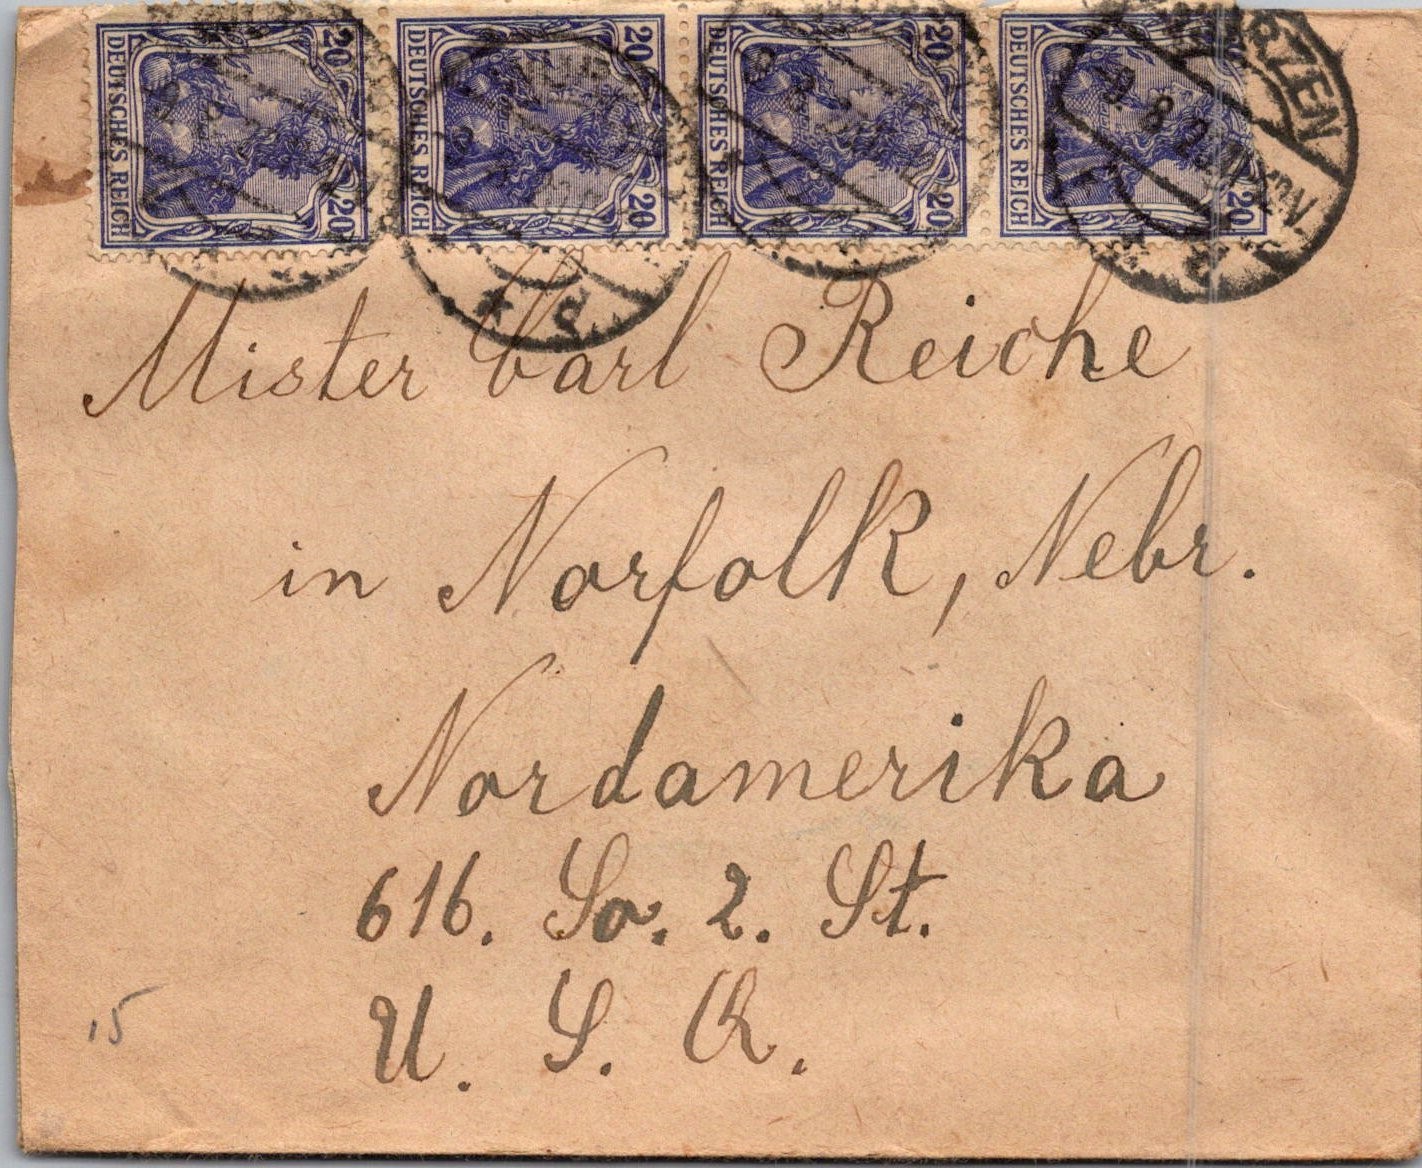 DEUTSCHES REICH 20 20
DEUTSCHES REICH 20 20
DEUTSCHES REICH 20 20
DEUTSCHES REICH 20 20
WURZEN
9.8.20
Mister Carl Reiche
in Norfolk, Nebr.
Nordamerika
616. So. 2. St.
U. S. A.
15